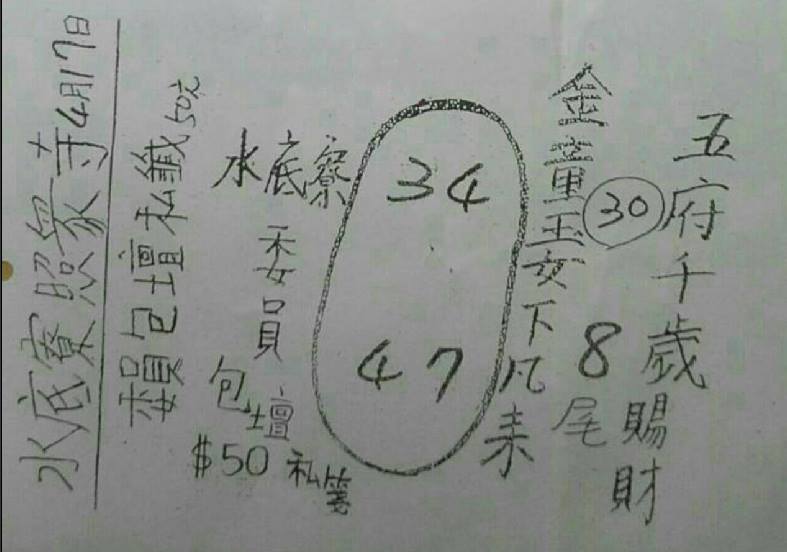 五府千歲賜財
30
8尾
金童玉女下凡来
34
47
水底寮
委員
包壇
$50 私箋
賴包壇私籤50元
水底寮照衆寺4月17日